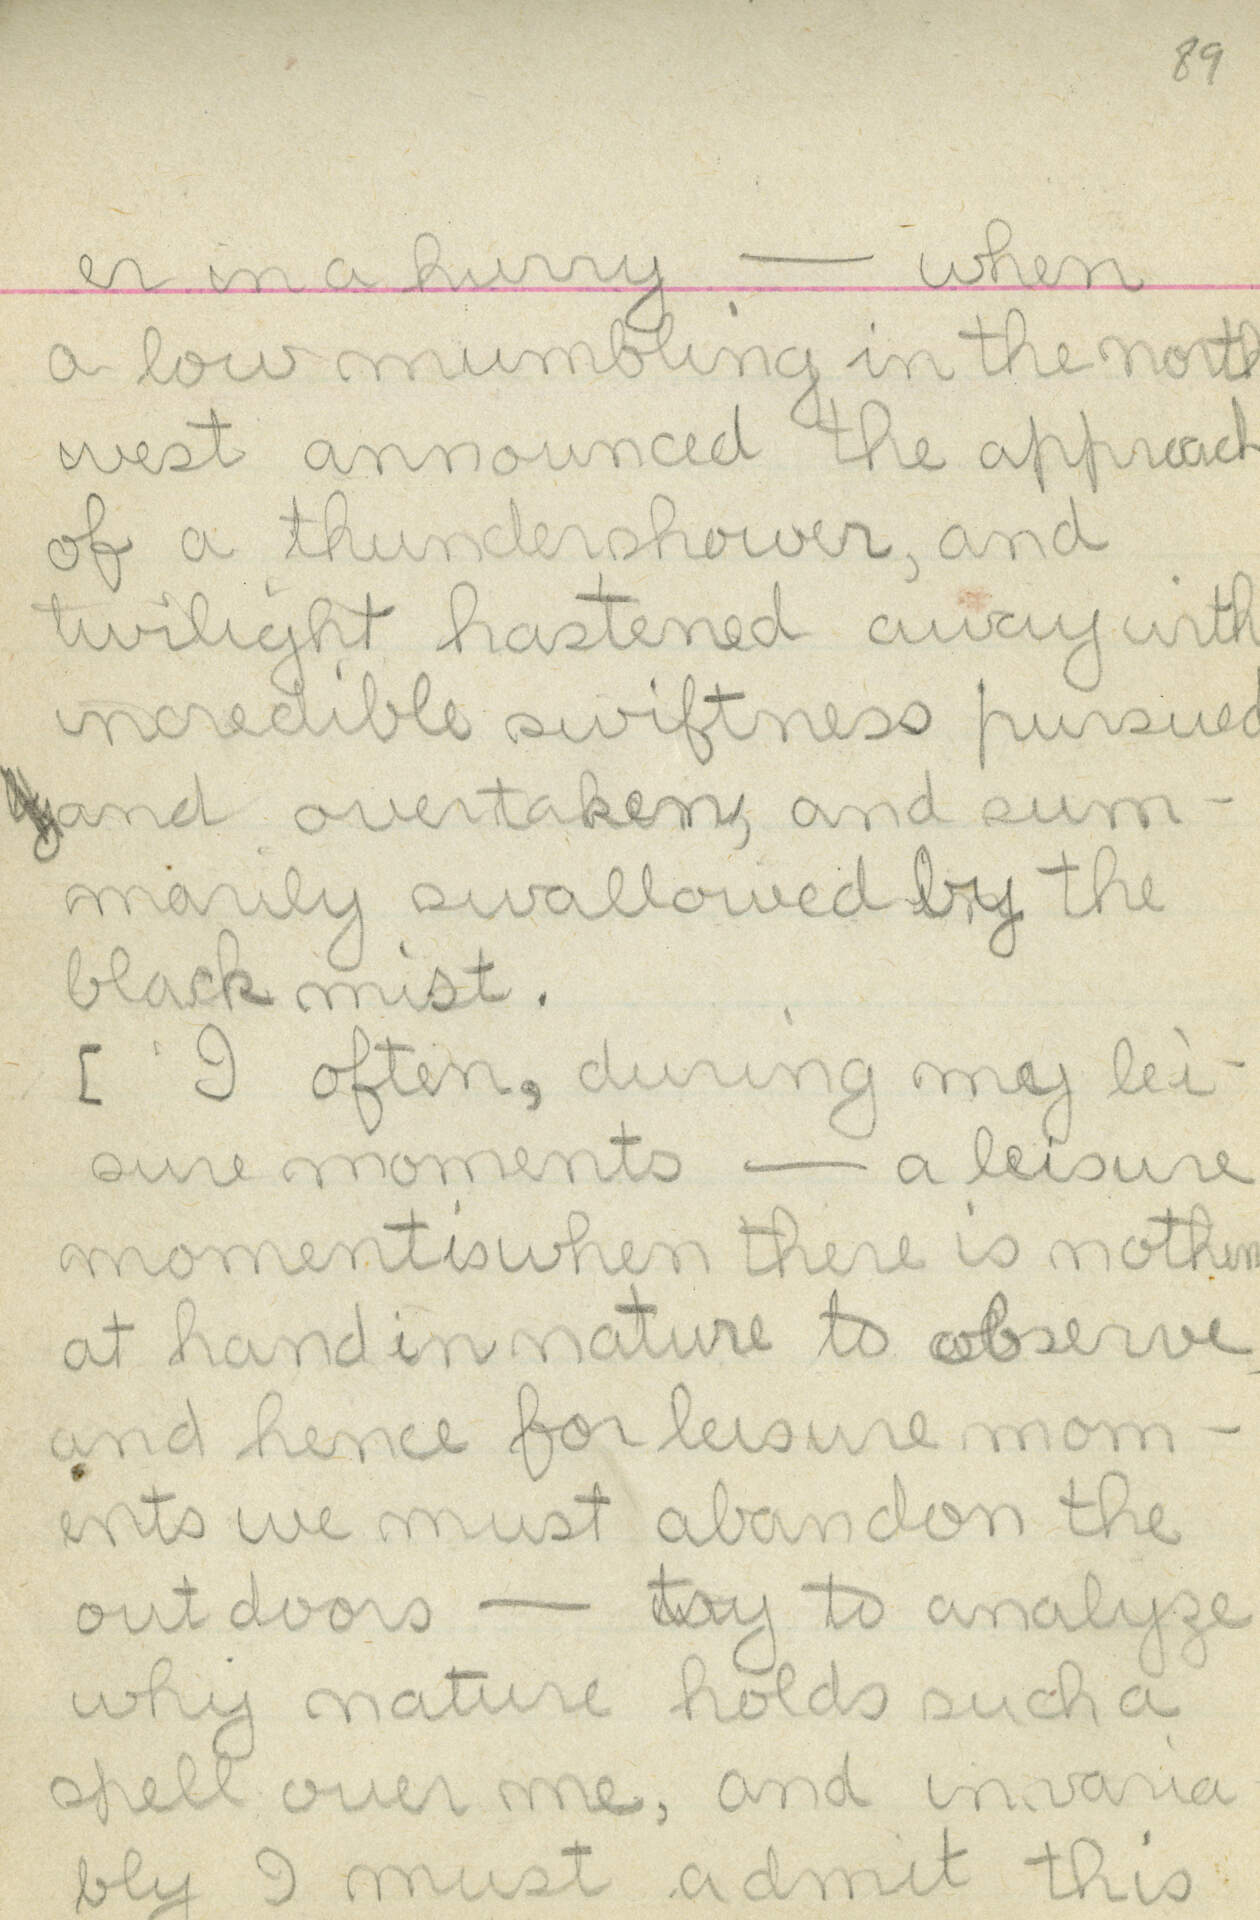 89
er in a hurry — when
a low mumbling in the north
west announced the approach
of a thundershower, and
twilight hastened away with
incredible swiftness pursued
and overtaken, and sum-
marily swallowed by the
black mist.
[ I often, during my lei-
sure moments — a leisure
moment is when there is nothin
at hand in nature to observe,
and hence for leisure mom-
ents we must abandon the
outdoors — try to analyze
why nature holds such a
spell over me, and invaria
bly I must admit this